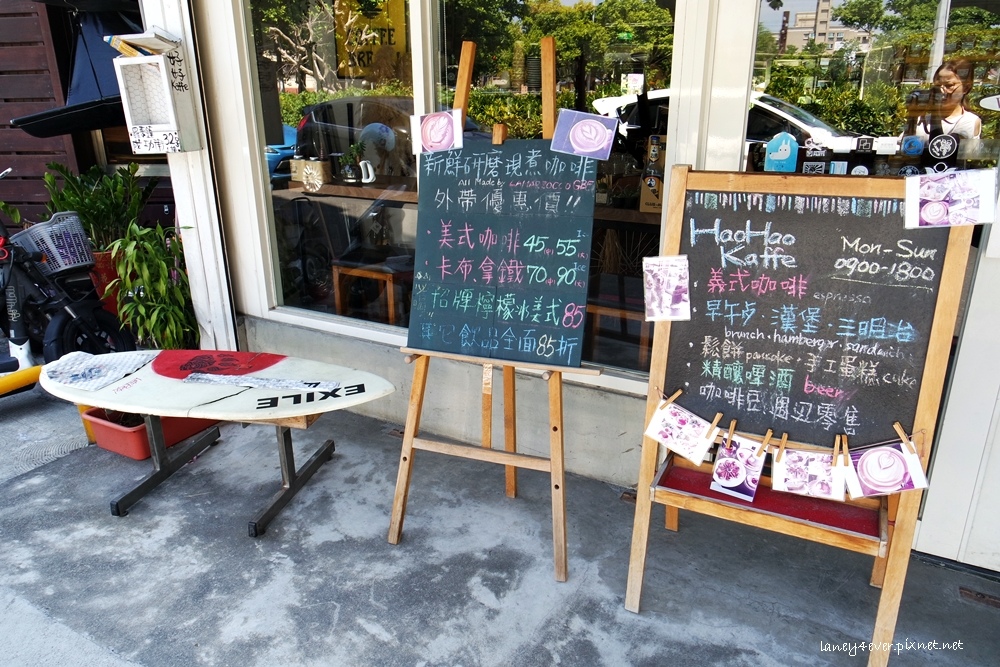 新鮮研磨現煮咖啡
All Made by LAMARZOCCO GB5
外帶優惠價!!
·美式咖啡 45 55
·卡布拿鐵 70 90
招牌檸檬冰美式 85
其它飲品全面85折
HaoHao
Kaffe
Mon-Sun
0900-1800
義式咖啡 espresso
早午歺·漢堡·三明治
brunch·hamberger·sandwich
·鬆餅 pancake·手工蛋糕 cake
精釀啤酒 beer
·咖啡豆週边零售
EXILE
Kaffe
laney4ever.pixnet.net